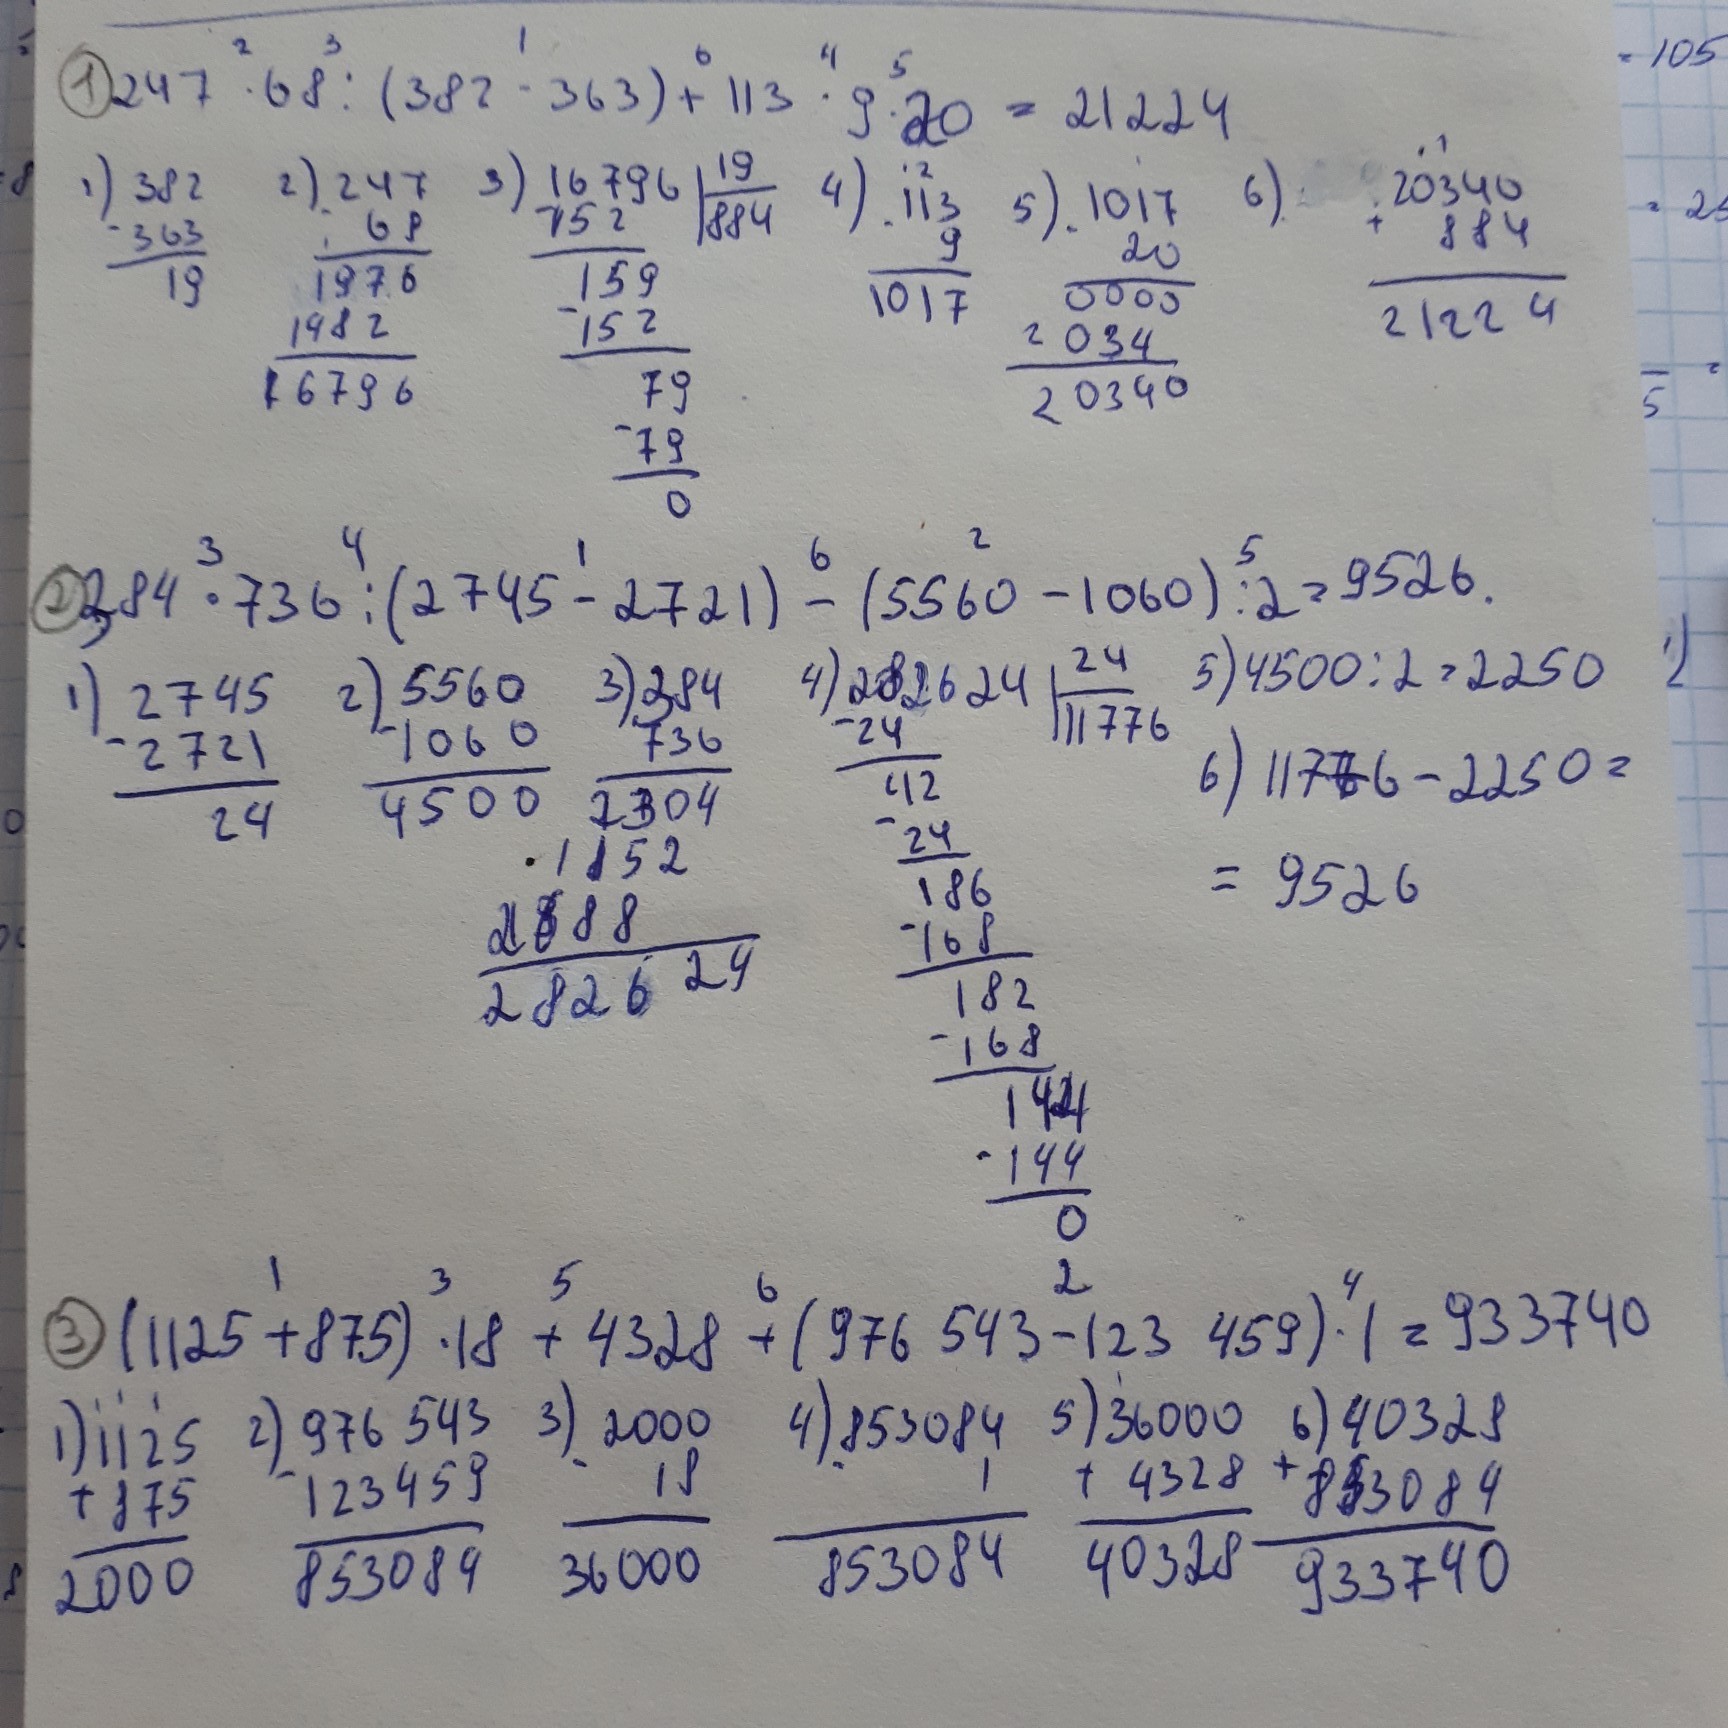 2 3 1 6 4 5
1 247 · 68 : (382 - 363) + 113 · 9 · 20 = 21224
1) 382 2) 247 3) 16796 | 19 4) 113 5) 1017 6) 20340
- 363 · 68 - 152 884 · 9 · 20 + 884
19 1976 159 1017 0000 21224
1482 - 152 2034
16796 79 20340
- 79
0
3 4 1 6 2 5
2 384 · 736 : (2745 - 2721) - (5560 - 1060) : 2 = 9526.
1) 2745 2) 5560 3) 384 4) 282624 | 24 5) 4500 : 2 = 2250
- 2721 - 1060 736 - 24 11776
24 4500 2304 42 6) 11776 - 2250 =
1152 - 24 = 9526
2688 186
282624 - 168
182
- 168
144
- 144
0
1 3 5 6 2 4
3 (1125 + 875) · 18 + 4328 + (976 543 - 123 459) · 1 = 933740
1) 1125 2) 976 543 3) 2000 4) 853084 5) 36000 6) 40328
+ 875 - 123459 · 18 · 1 + 4328 + 853084
2000 853084 36000 853084 40328 933740
= 105